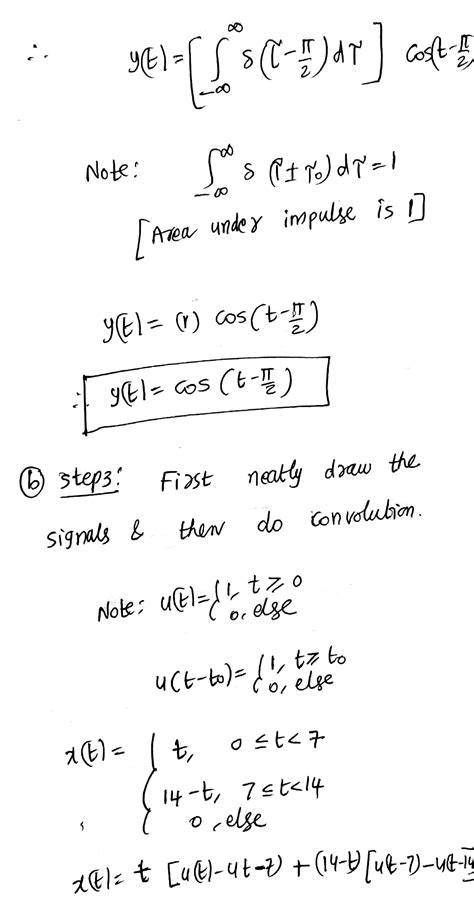 ∴ y(t) = [∫_{-∞}^{∞} δ(τ - π/2) dτ] cos(t - π/2
Note: ∫_{-∞}^{∞} δ(τ ± τ₀) dτ = 1
[Area under impulse is 1]
y(t) = (1) cos(t - π/2)
∴ y(t) = cos(t - π/2)
(b) Step3: First neatly draw the
signals & then do convolution.
Note: u(t) = { 1, t ≥ 0
0, else
u(t-t₀) = { 1, t ≥ t₀
0, else
x(t) = { t, 0 ≤ t < 7
14-t, 7 ≤ t < 14
0, else
x(t) = t [u(t) - u t-7) + (14-t) [u(t-7) - u(t-14